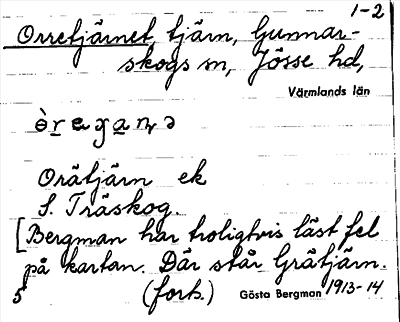 1-2
Orretjärnet, tjärn, Gunnar-
skogs sn, Jösse hd,
Värmlands län
Orätjärn ek
S. Träskog.
[Bergman har troligtvis läst fel
på kartan. Där står Grätjärn.
5 (forts.) Gösta Bergman 1913-14